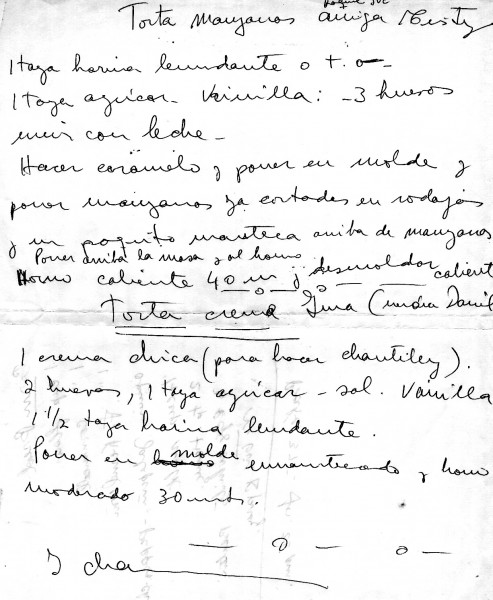 Torta manzanas amiga
1 taza harina leudante o t. o—
1 taza azúcar - Vainilla: - 3 huevos
unir con leche -
Hacer caramelo y poner en molde y
poner manzanas ya cortadas en rodajas
y un poquito manteca arriba de manzanas
Poner arriba la masa y al horno
Horno caliente 40 m y desmoldar caliente
— o — o —
Torta crema Gina (
1 crema chica (para hacer chantiley).
2 huevos, 1 taza azúcar - sal. Vainilla
1 1/2 taza harina leudante.
Poner en molde enmantecado y horno
moderado 30 mts.
— o — o —
Y cha